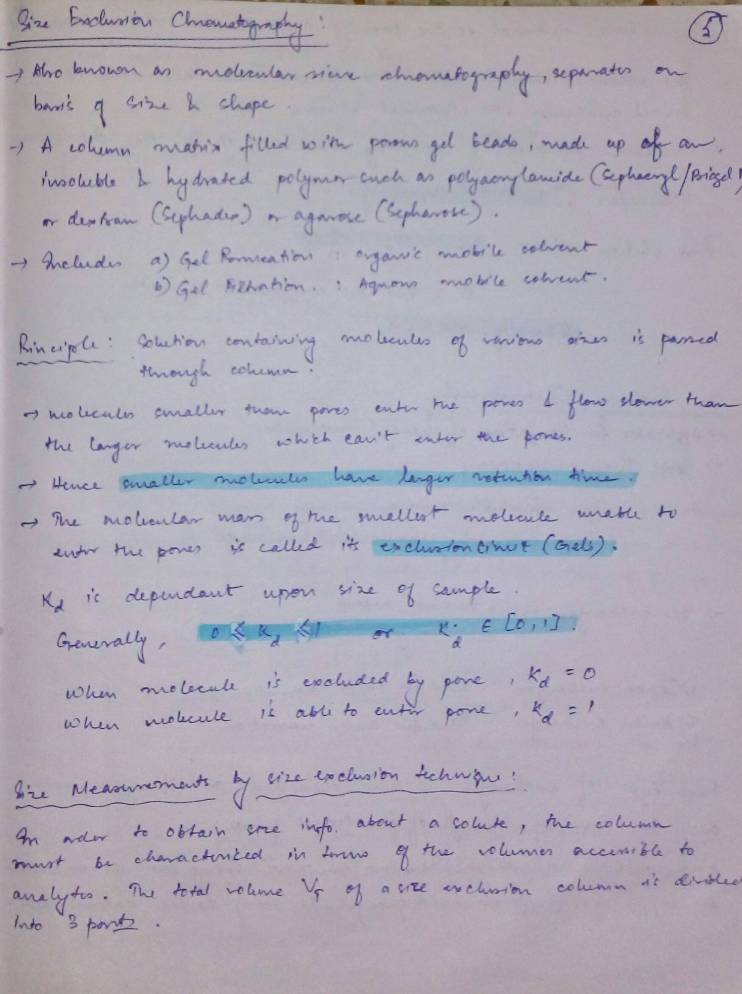 Size Exclusion Chromatography :
5
→ Also known as molecular sieve chromatography, separates on
basis of size & shape.
→ A column matrix filled with porous gel beads, made up of an
insoluble & hydrated polymer such as polyacrylamide (Sephacryl/Biogel P)
or dextran (Sephadex) or agarose (Sepharose).
→ Includes a) Gel Permeation : organic mobile solvent
b) Gel Filtration. : Aqueous mobile solvent.
Principle : Solution containing molecules of various sizes is passed
through column.
→ molecules smaller than pores enter the pores & flow slower than
the larger molecules which can't enter the pores.
→ Hence smaller molecules have larger retention time.
→ The molecular mass of the smallest molecule unable to
enter the pores is called its exclusion limit (Gels).
Kd is dependant upon size of sample.
Generally, 0 ≤ Kd ≤ 1 or Kd ∈ [0,1].
When molecule is excluded by pore, Kd = 0
When molecule is able to enter pore, Kd = 1
Size Measurements by size exclusion technique :
In order to obtain size info. about a solute, the column
must be characterized in terms of the volumes accessible to
analytes. The total volume VT of a size exclusion column is divided
into 3 parts.